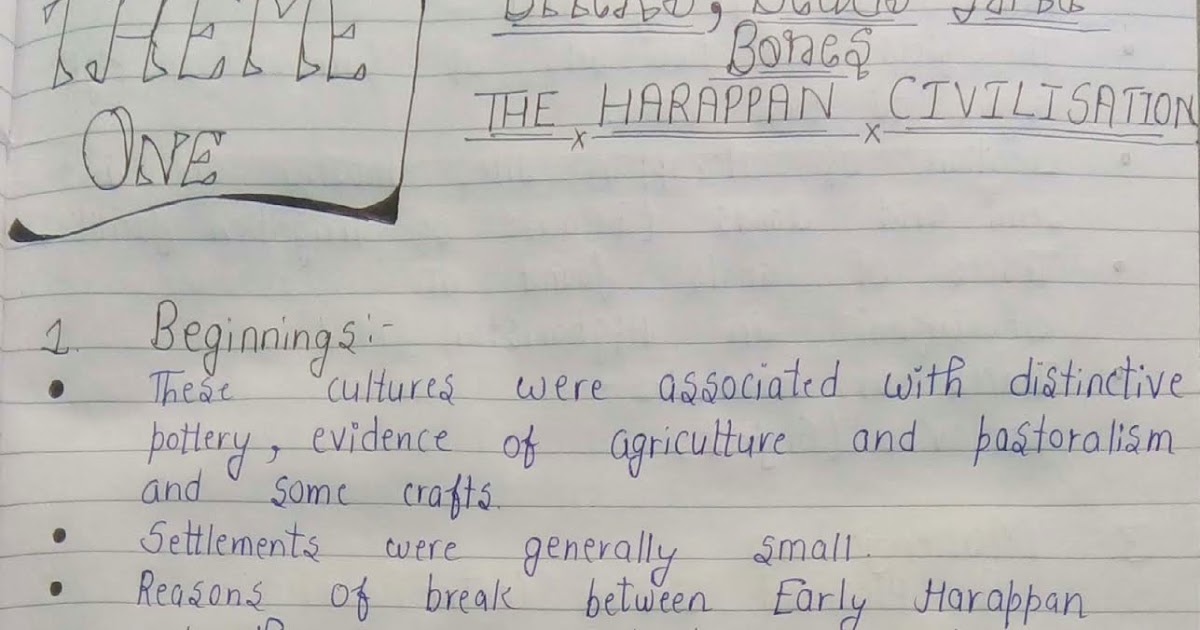 THEME
ONE
Bones
THE HARAPPAN CIVILISATION
1. Beginnings:-
• These cultures were associated with distinctive
pottery, evidence of agriculture and pastoralism
and some crafts.
• Settlements were generally small.
• Reasons of break between Early Harappan